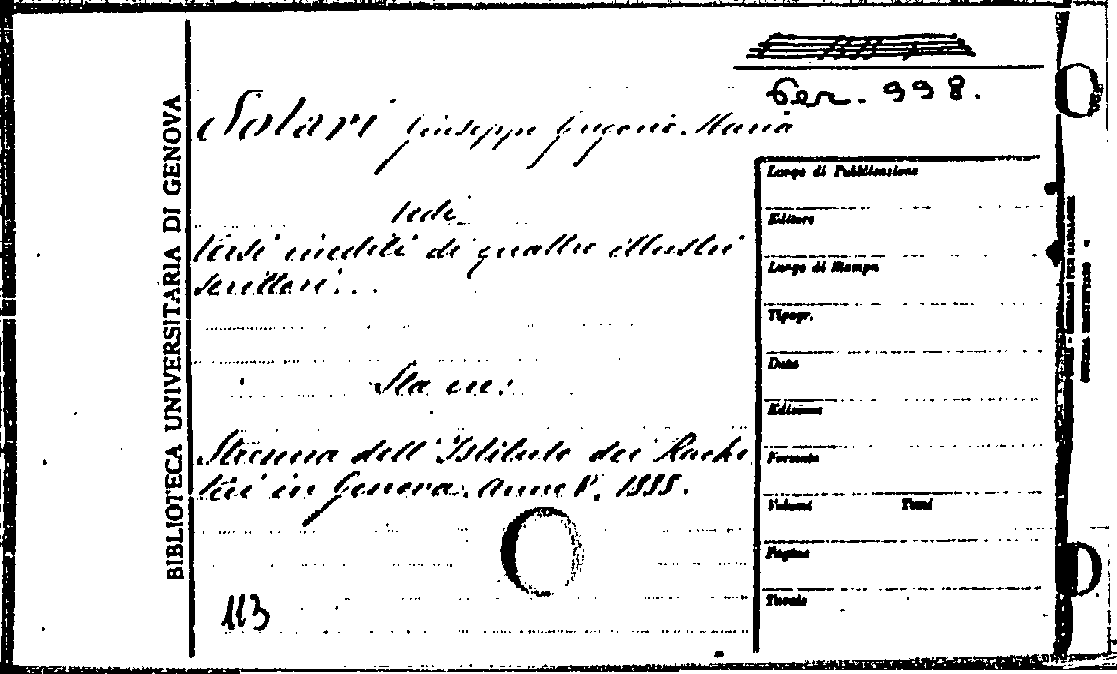 BIBLIOTECA UNIVERSITARIA DI GENOVA
Per. 998.
Solari Giuseppe Gregorio Maria
Vedi
Versi inediti di quattro illustri
scrittori...
Sta in:
Strenna dell'Istituto dei Rachi
tici in Genova. Anno V. 1888.
113
Luogo di Pubblicazione
Editore
Luogo di Stampa
Tipogr.
Data
Edizione
Formato
Volumi Tomi
Pagine
Tavole